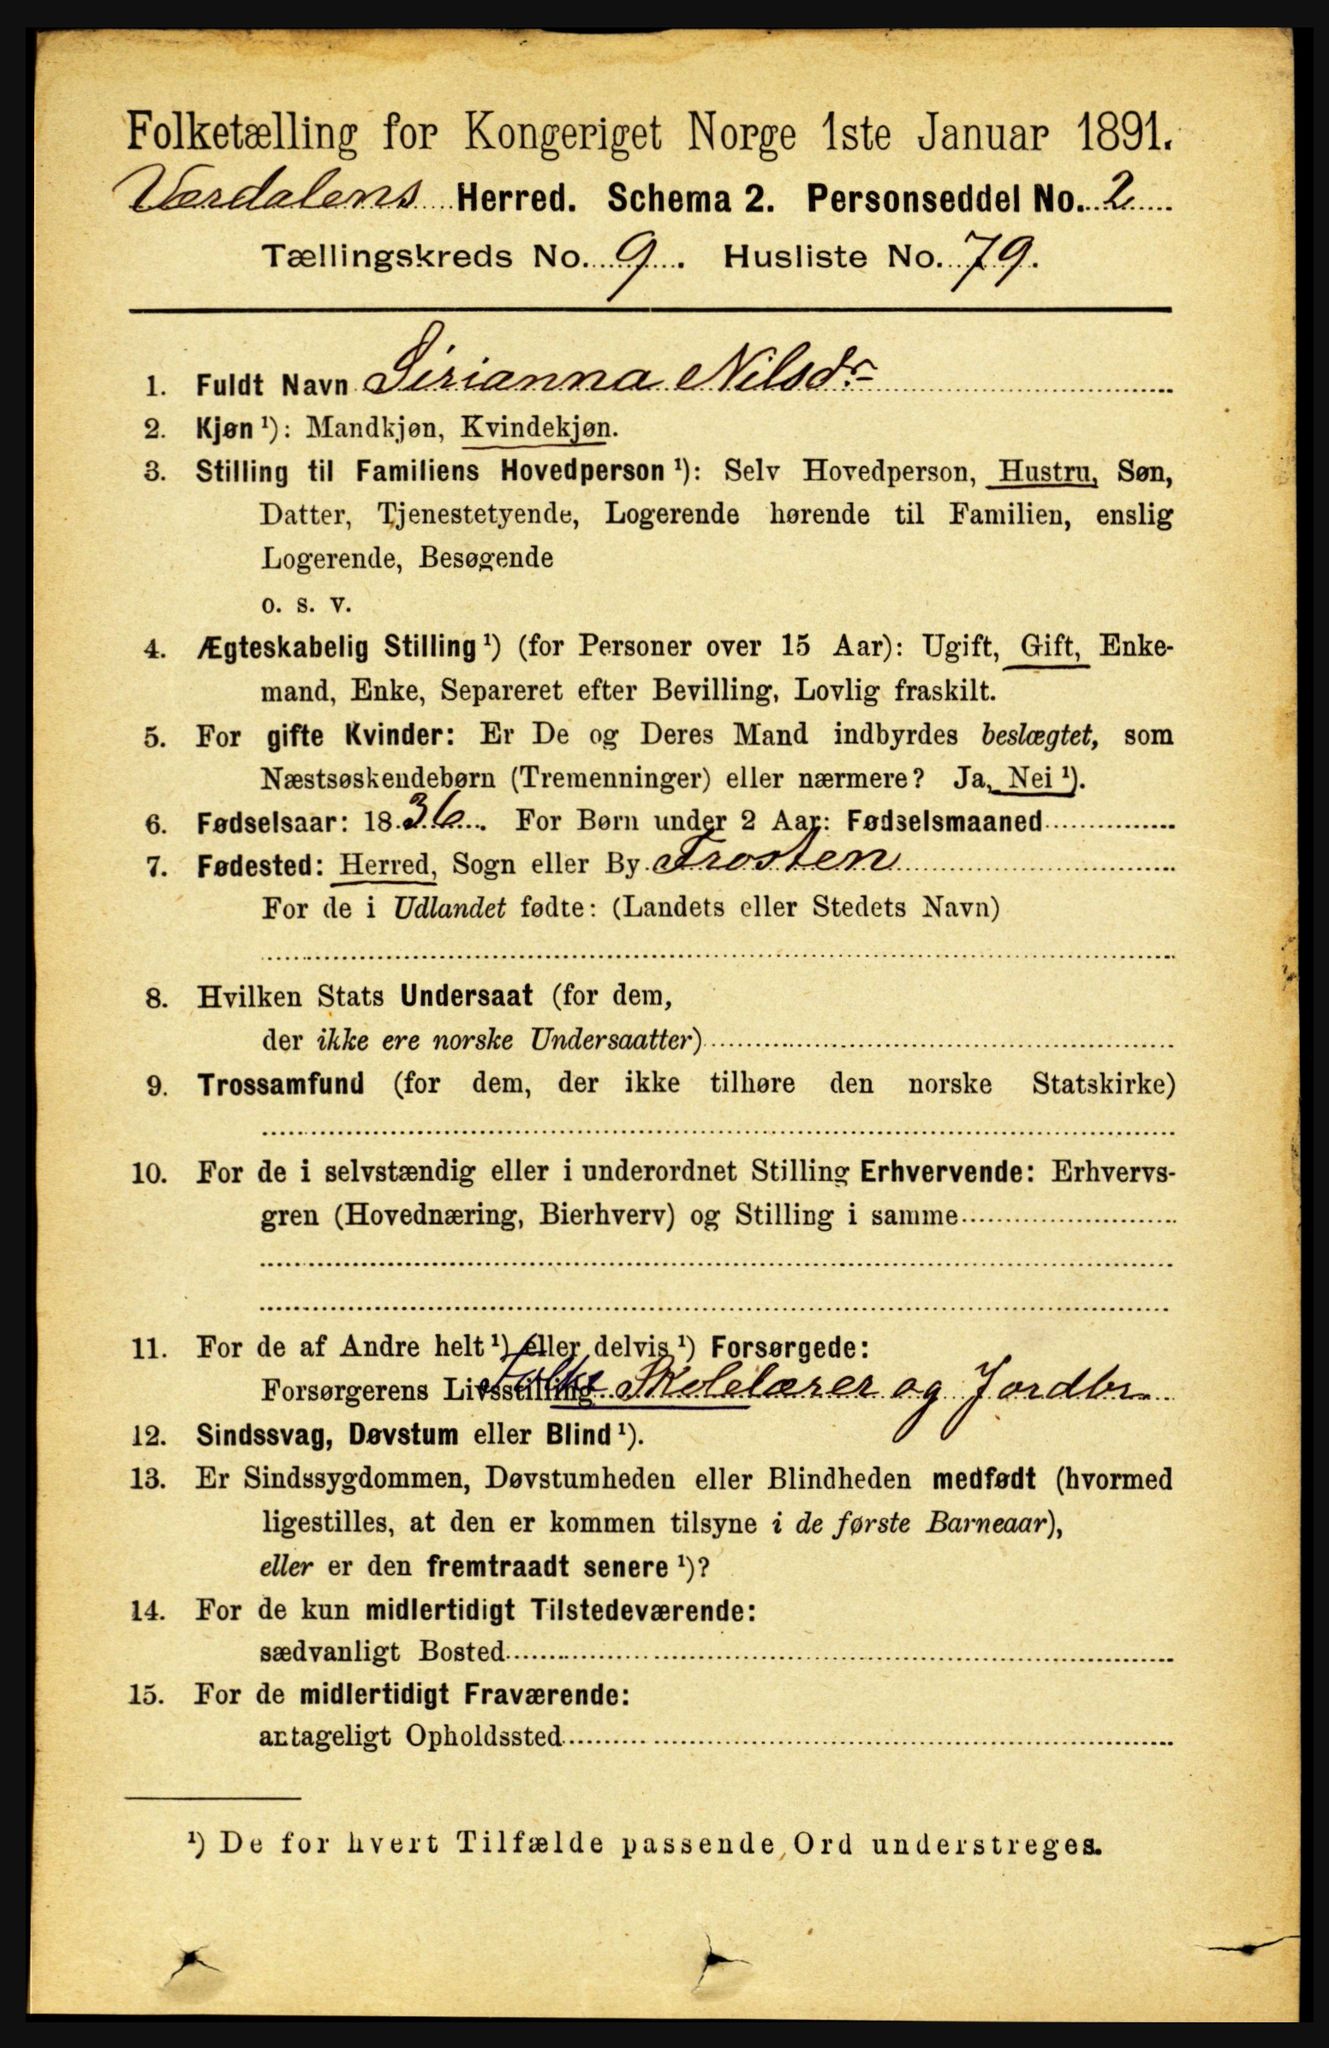 Folketælling for Kongeriget Norge 1ste Januar 1891.
Værdalens Herred. Schema 2. Personseddel No. 2
Tællingskreds No. 9. Husliste No. 79.
1. Fuldt Navn Sirianna Nilsdr
2. Kjøn ¹): Mandkjøn, Kvindekjøn.
3. Stilling til Familiens Hovedperson ¹): Selv Hovedperson, Hustru, Søn,
Datter, Tjenestetyende, Logerende hørende til Familien, enslig
Logerende, Besøgende
o. s. v.
4. Ægteskabelig Stilling ¹) (for Personer over 15 Aar): Ugift, Gift, Enke-
mand, Enke, Separeret efter Bevilling, Lovlig fraskilt.
5. For gifte Kvinder: Er De og Deres Mand indbyrdes beslægtet, som
Næstsøskendebørn (Tremenninger) eller nærmere? Ja, Nei ¹).
6. Fødselsaar: 1836. For Børn under 2 Aar: Fødselsmaaned
7. Fødested: Herred, Sogn eller By Frosten
For de i Udlandet fødte: (Landets eller Stedets Navn)
8. Hvilken Stats Undersaat (for dem,
der ikke ere norske Undersaatter)
9. Trossamfund (for dem, der ikke tilhøre den norske Statskirke)
10. For de i selvstændig eller i underordnet Stilling Erhvervende: Erhvervs-
gren (Hovednæring, Bierhverv) og Stilling i samme
11. For de af Andre helt ¹) eller delvis ¹) Forsørgede:
Forsørgerens Livsstilling Folke Skolelærer og Jordbr.
12. Sindssvag, Døvstum eller Blind ¹).
13. Er Sindssygdommen, Døvstumheden eller Blindheden medfødt (hvormed
ligestilles, at den er kommen tilsyne i de første Barneaar),
eller er den fremtraadt senere ¹)?
14. For de kun midlertidigt Tilstedeværende:
sædvanligt Bosted
15. For de midlertidigt Fraværende:
antageligt Opholdssted
¹) De for hvert Tilfælde passende Ord understreges.